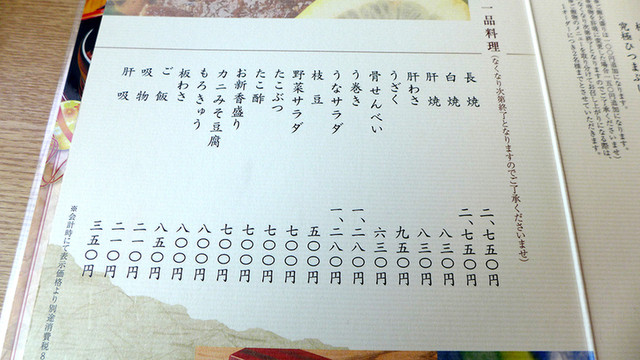 究極ひつまぶ
一品料理（なくなり次第終了となりますのでご了承くださいませ）
長焼 二、七五〇円
白焼 二、七五〇円
肝焼 八三〇円
肝わさ 八三〇円
うざく 九五〇円
骨せんべい 六三〇円
う巻き 一、二八〇円
うなサラダ 一、二八〇円
枝豆 五〇〇円
野菜サラダ 七〇〇円
たこぶつ 七〇〇円
たこ酢 七〇〇円
お新香盛り 七〇〇円
カニみそ豆腐 八〇〇円
もろきゅう 八〇〇円
板わさ 八五〇円
ご飯 二一〇円
吸物 二一〇円
肝吸 三五〇円
※会計時にて表示価格より別途消費税8